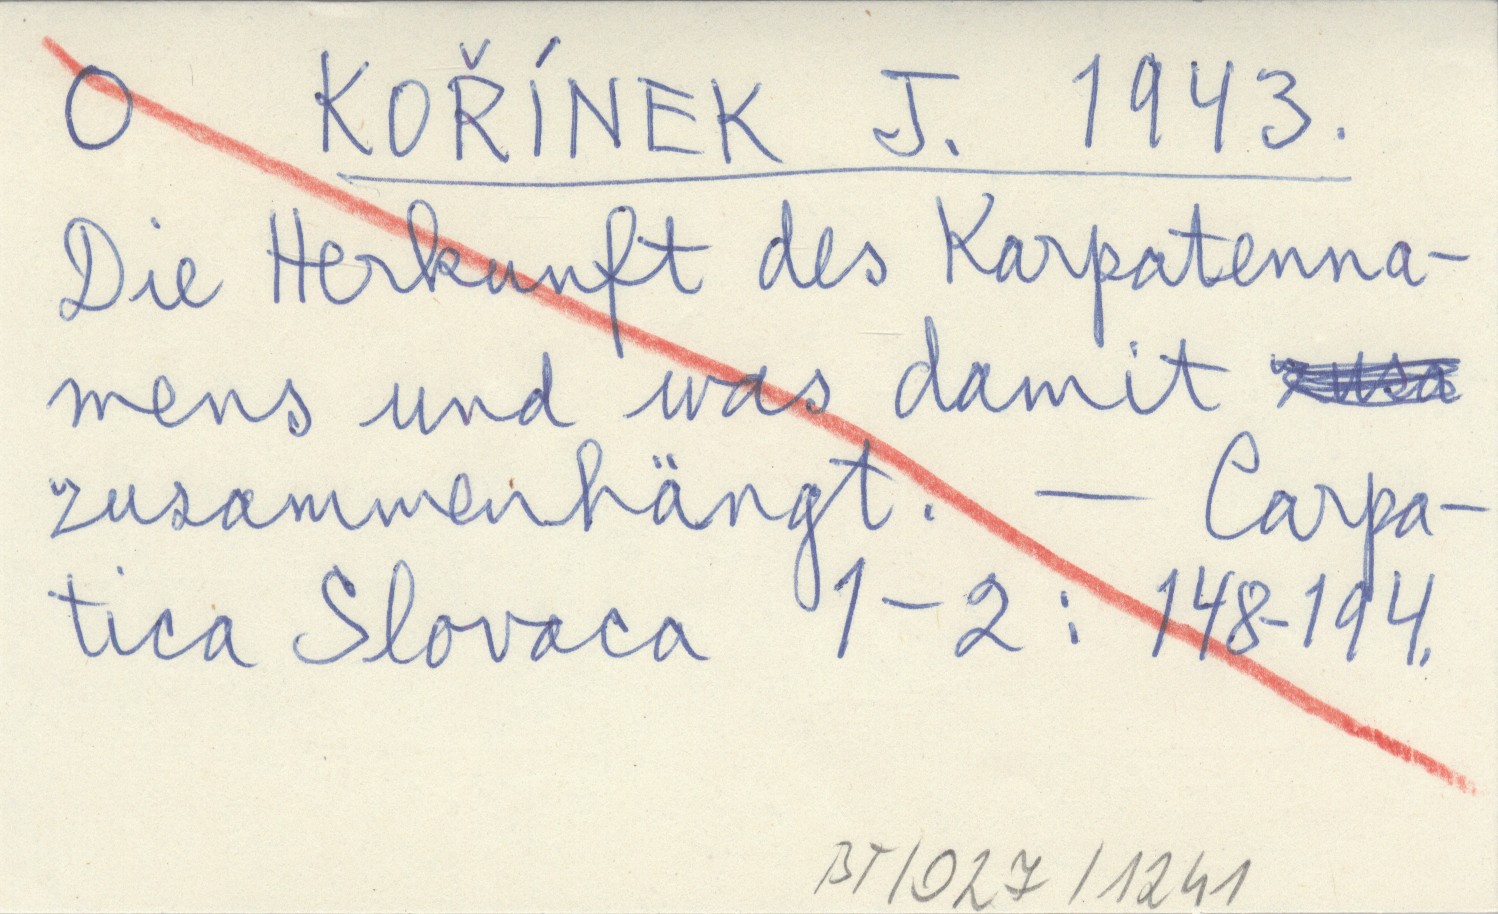 O KOŘÍNEK J. 1943.
Die Herkunft des Karpatenna-
mens und was damit
zusammenhängt. — Carpa-
tica Slovaca 1-2: 148-194.
BT/027/1241